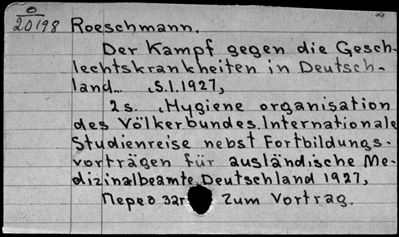 0
20198 Roeschmann.
Der Kampf gegen die Gesch-
lechtskrankheiten in Deutsch-
land... S.l.1927,
2 s. (Hygiene organisation
des Völkerbundes. Internationale
Studienreise nebst Fortbildungs-
vorträgen für ausländische Me-
dizinalbeamte, Deutschland 1927,
Перед заг Zum Vortrag.